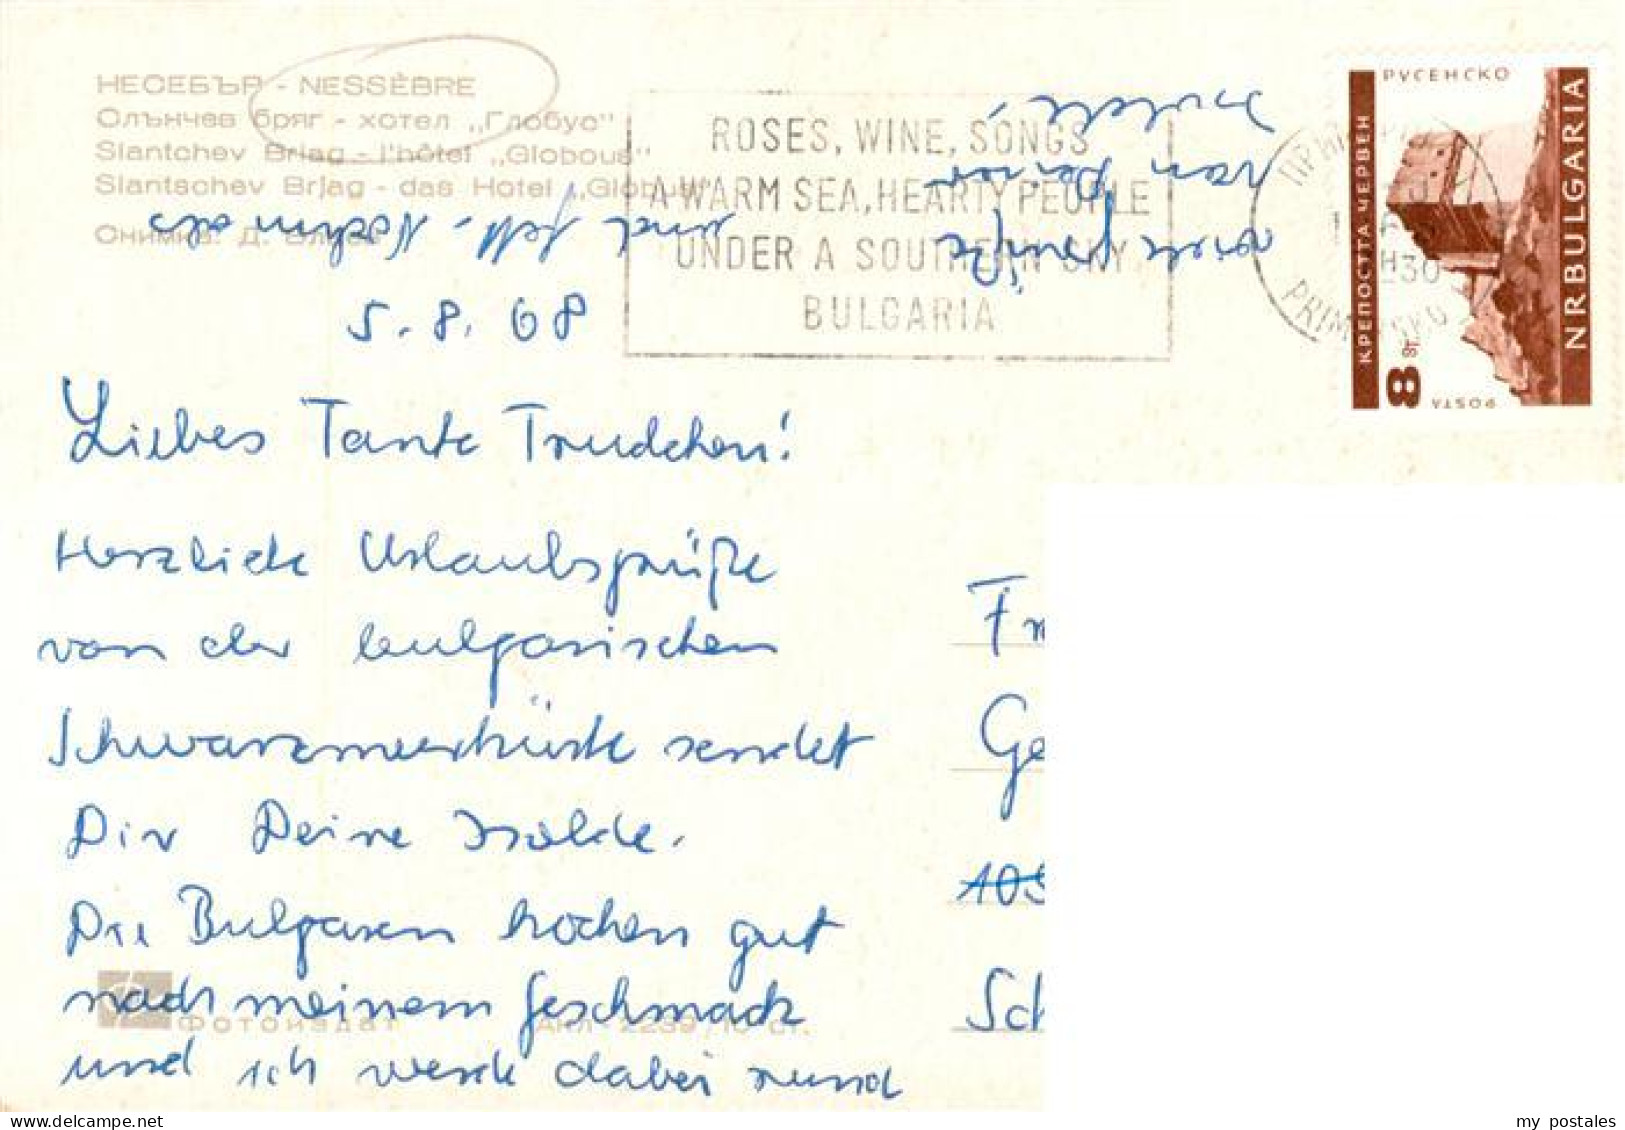 НЕСЕБЪР - NESSÈBRE
Слънчев бряг - хотел „Глобус"
Slantchev Briag - l'hôtel „Globous"
Slantschev Brjag - das Hotel „Globus"
Снимка: Д.
ROSES, WINE, SONGS
A WARM SEA, HEARTY PEOPLE
UNDER A SOUTHERN SKY
BULGARIA
РУСЕНСКО
КРЕПОСТТА ЧЕРВЕН
NRBULGARIA
8 ст.
POSTA
PRIMORSKO
5.8.68
Liebes Tante Trudchen!
Herzliche Urlaubsgrüße
von der bulgarischen
Schwarzmeerküste sendet
Dir Deine Isolde.
Die Bulgaren kochen gut
nach meinem Geschmack
und ich werde dabei rund
und fett. Nochmals
viele Grüße
von Deiner
Isolde
Fr
Ge
105
Sch
Фотоиздат
my postales